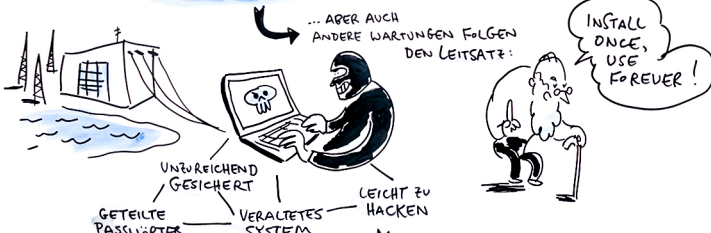 ... ABER AUCH
ANDERE WARTUNGEN FOLGEN
DEN LEITSATZ:
INSTALL
ONCE,
USE
FOREVER!
UNZUREICHEND
GESICHERT
LEICHT ZU
HACKEN
GETEILTE
PASSWÖRTER
VERALTETES
SYSTEM